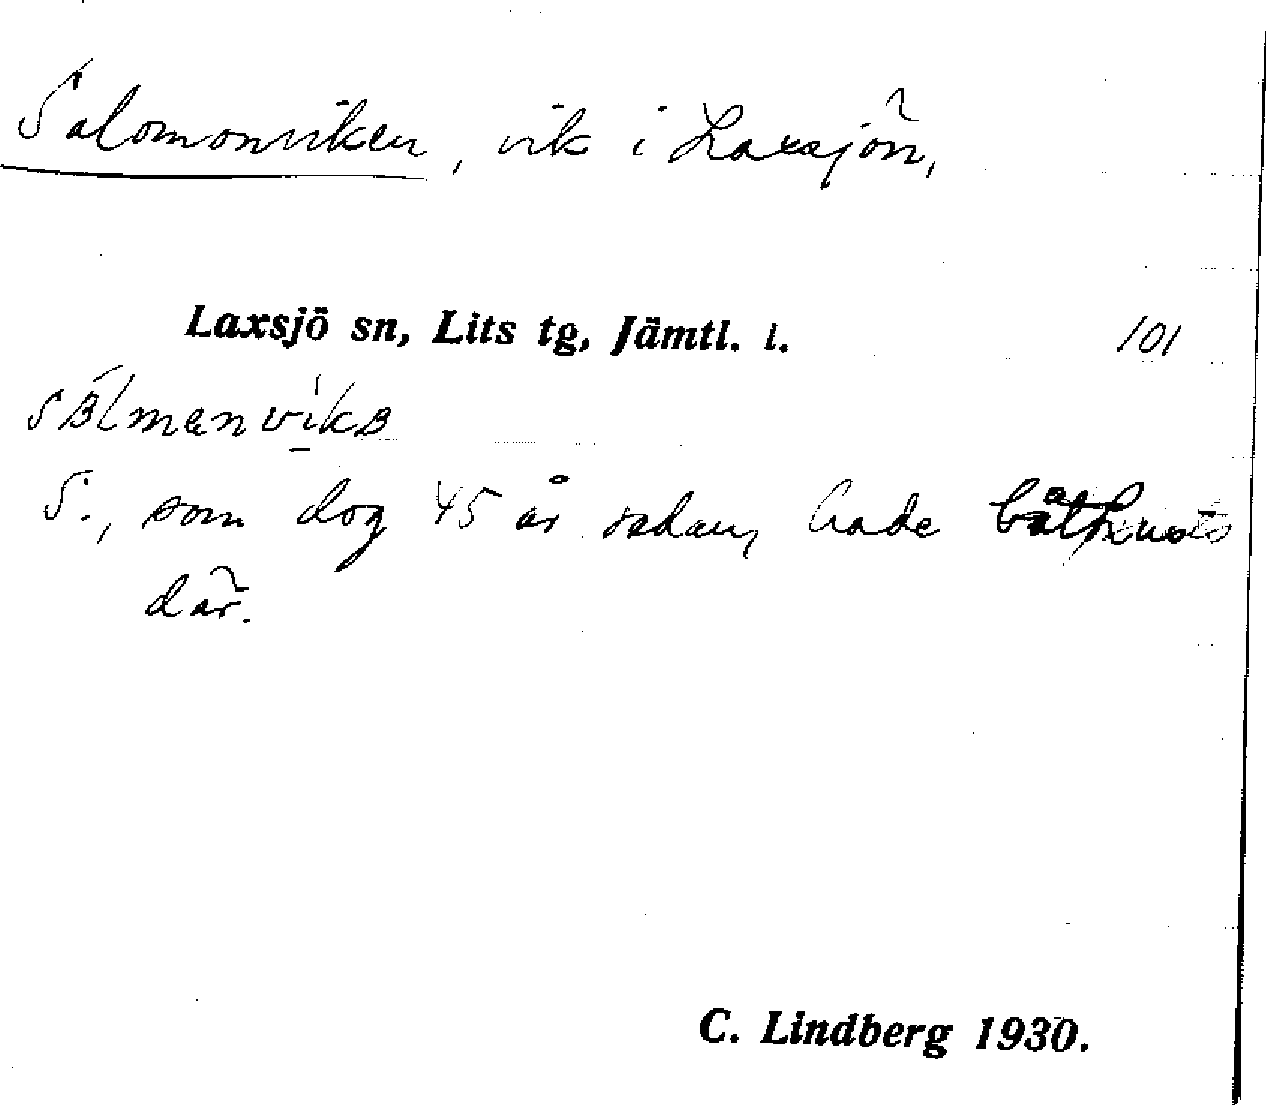 Salomonviken, vik i Laxsjön,
Laxsjö sn, Lits tg, Jämtl. l. 101
S., som dog 45 år sedan, hade båthus
där.
C. Lindberg 1930.